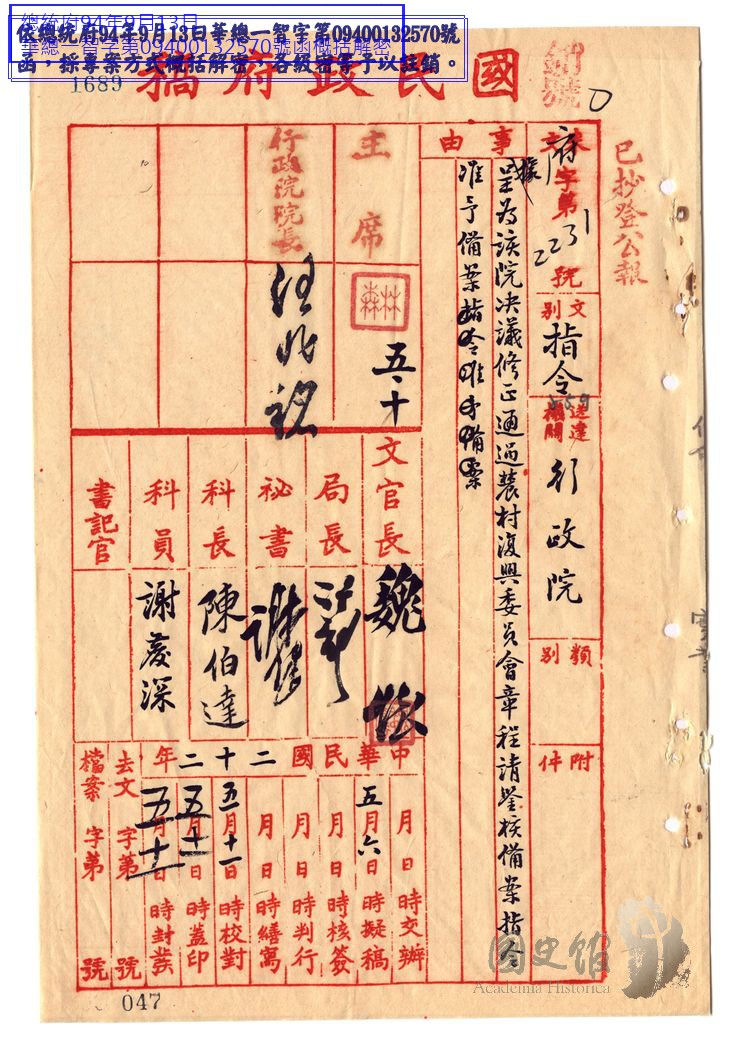 總統府94年9月13日
華總一智字第09400132570號函概括解密
依總統府94年9月13日華總一智字第09400132570號
函，採專案方式概括解密，各級密等予以註銷。
1689
國民政府稿
已抄登公報
府字第2231號
文別
指令
送達機關
行政院
類別
附件
事由
據呈為該院決議修正通過農村復興委員會章程請鑒核備案指令
准予備案
主席
林森
五、十
行政院院長
汪兆銘
文官長
魏懷
局長
祕書
科長
陳伯達
科員
謝慶深
書記官
中華民國二十二年
月日時交辦
五月六日時擬稿
月日時核簽
月日時判行
月日時繕寫
五月十一日時校對
五月十一日時蓋印
五月十一日時封發
去文字第號
檔案字第號
047
國史館
Academia Historica